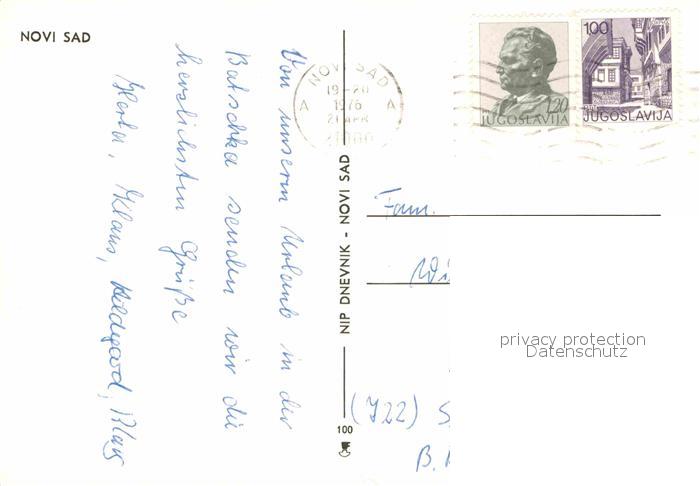 NOVI SAD
Von unserm Urlaub in der
Batschka senden wir die
herzlichsten Grüße
Herta, Klaus, Hildegard, Klaus
NIP DNEVNIK - NOVI SAD
100
NOVI SAD
19-20
A 1976 A
21 APR
1.20
JUGOSLAVIJA
1.00
JUGOSLAVIJA
Fam.
Wi
privacy protection
Datenschutz
(722) S
B.